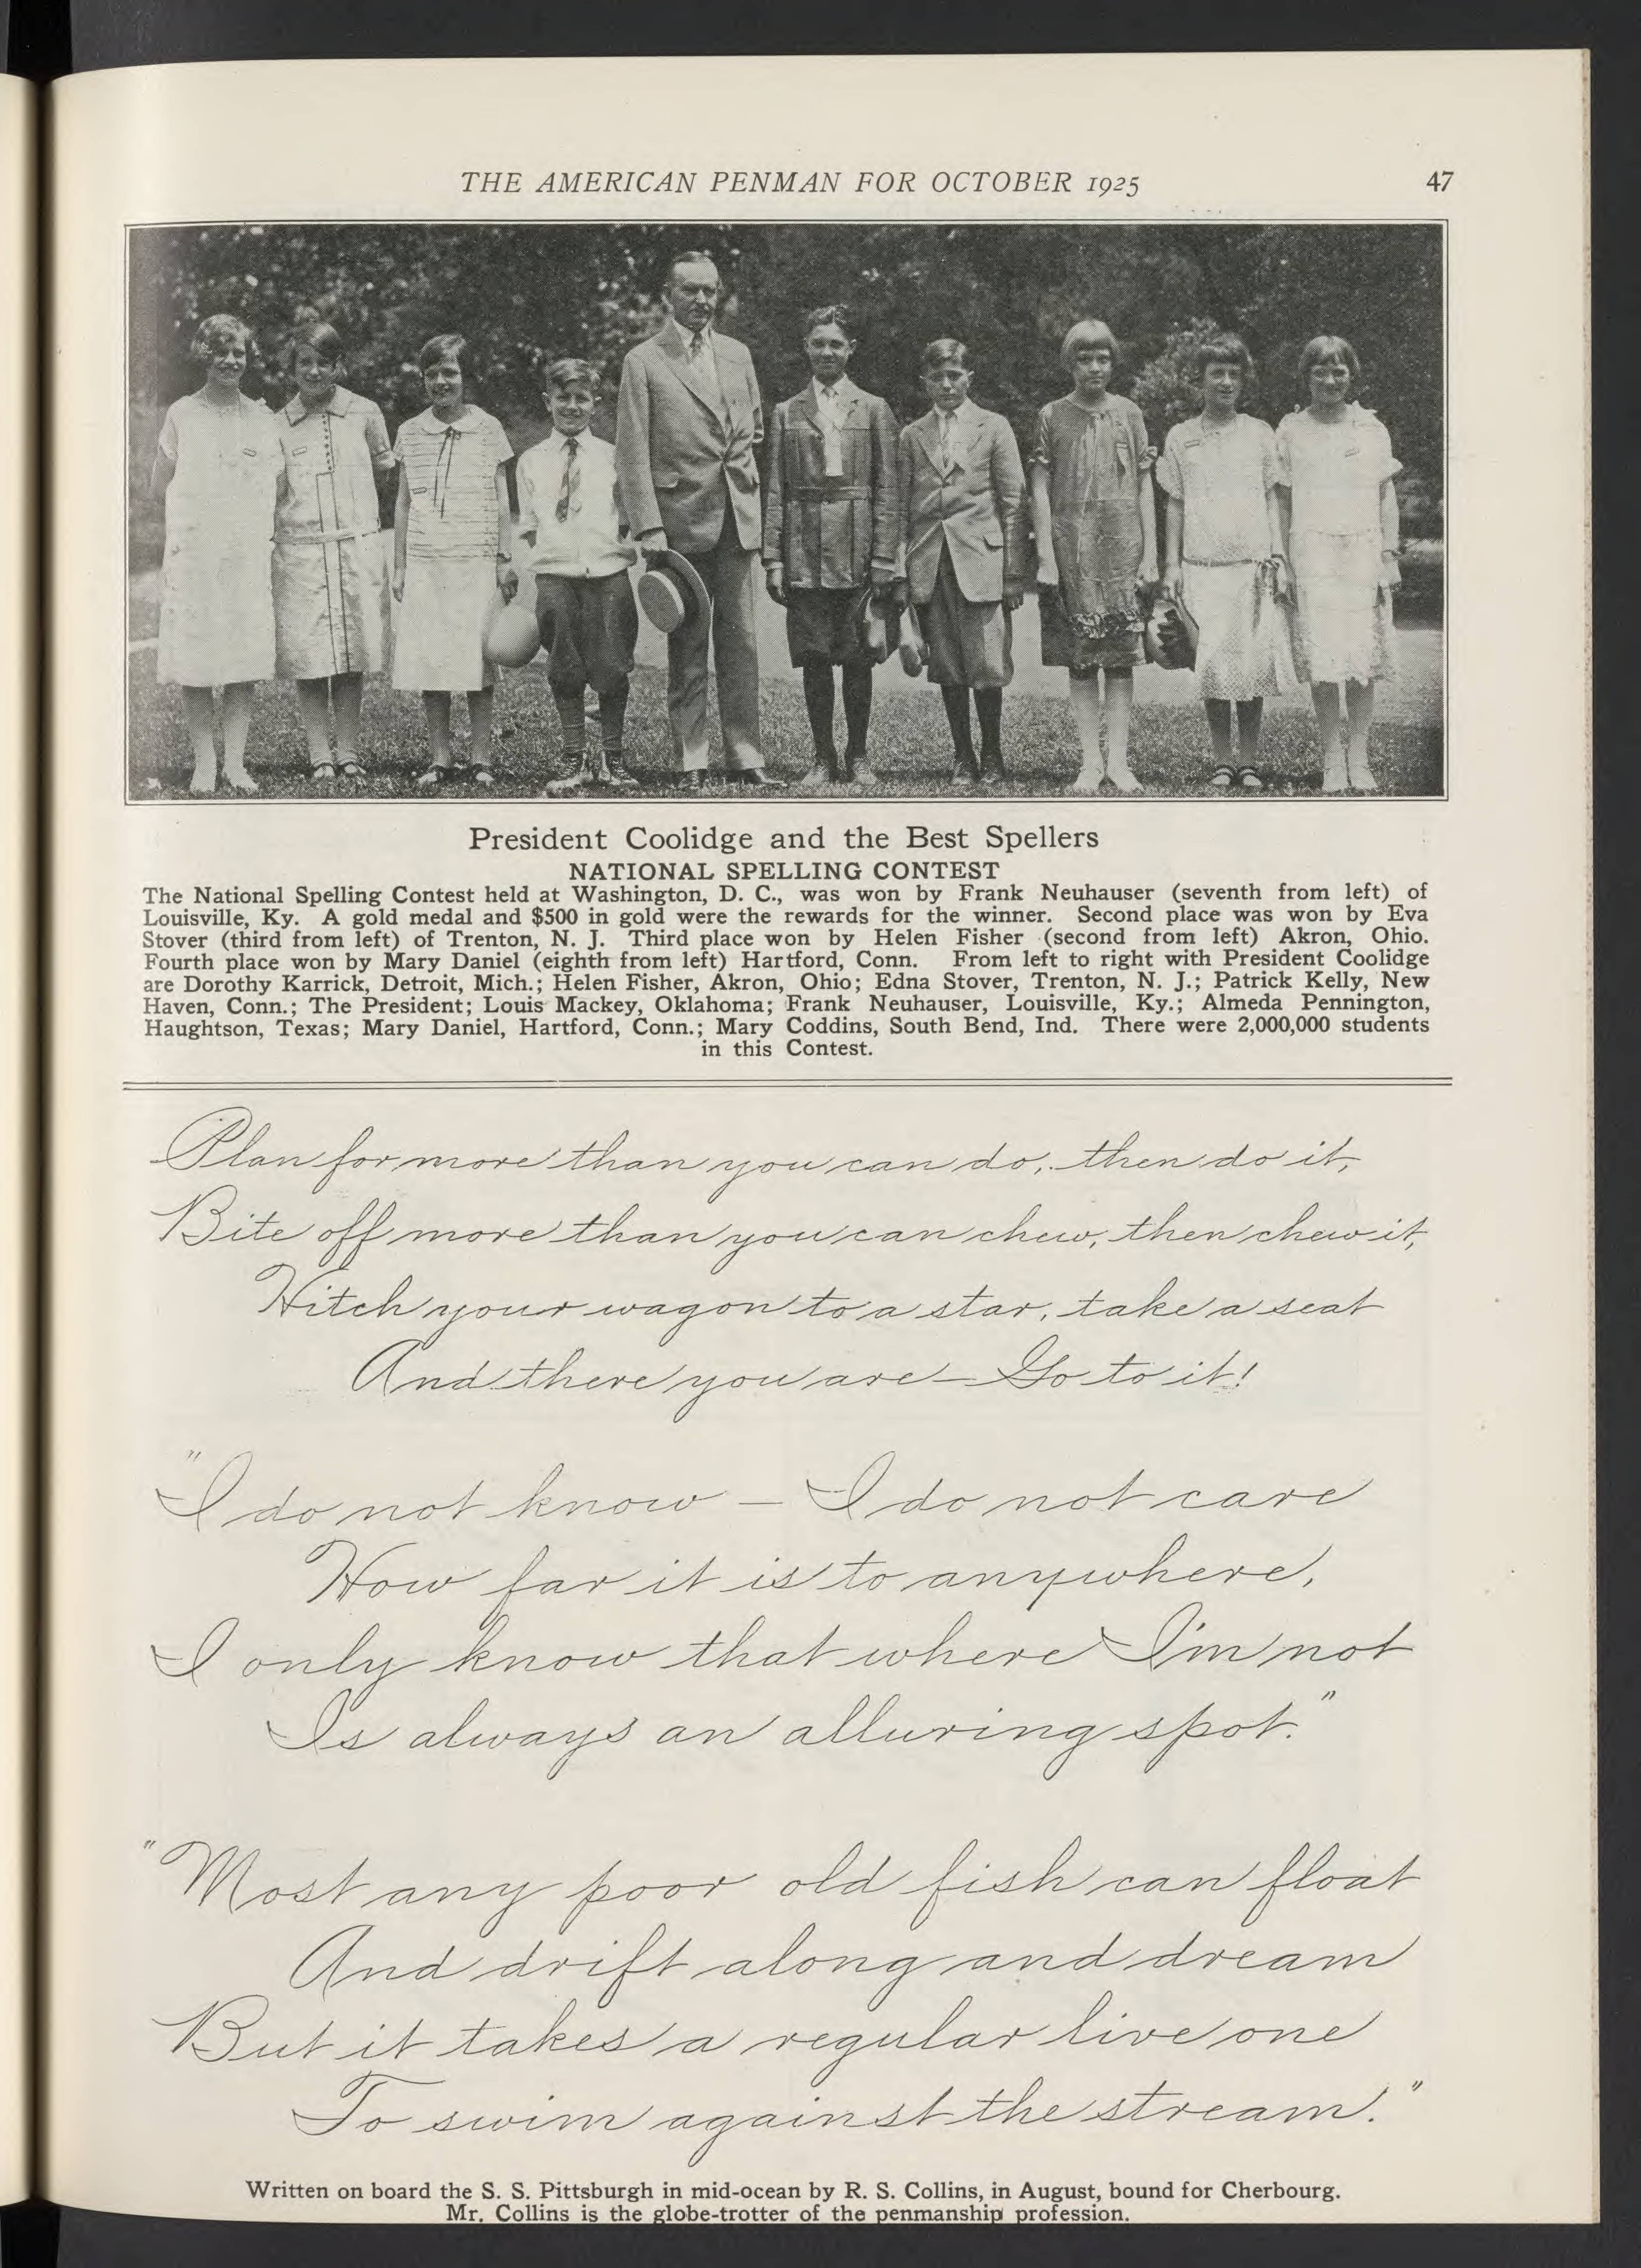 THE AMERICAN PENMAN FOR OCTOBER 1925 47
President Coolidge and the Best Spellers
NATIONAL SPELLING CONTEST
The National Spelling Contest held at Washington, D. C., was won by Frank Neuhauser (seventh from left) of
Louisville, Ky. A gold medal and $500 in gold were the rewards for the winner. Second place was won by Eva
Stover (third from left) of Trenton, N. J. Third place won by Helen Fisher (second from left) Akron, Ohio.
Fourth place won by Mary Daniel (eighth from left) Hartford, Conn. From left to right with President Coolidge
are Dorothy Karrick, Detroit, Mich.; Helen Fisher, Akron, Ohio; Edna Stover, Trenton, N. J.; Patrick Kelly, New
Haven, Conn.; The President; Louis Mackey, Oklahoma; Frank Neuhauser, Louisville, Ky.; Almeda Pennington,
Haughtson, Texas; Mary Daniel, Hartford, Conn.; Mary Coddins, South Bend, Ind. There were 2,000,000 students
in this Contest.
Plan for more than you can do, then do it,
Bite off more than you can chew, then chew it,
Hitch your wagon to a star, take a seat
And there you are — Go to it!
"I do not know — I do not care
How far it is to anywhere,
I only know that where I'm not
Is always an alluring spot."
"Most any poor old fish can float
And drift along and dream
But it takes a regular live one
To swim against the stream."
Written on board the S. S. Pittsburgh in mid-ocean by R. S. Collins, in August, bound for Cherbourg.
Mr. Collins is the globe-trotter of the penmanship profession.